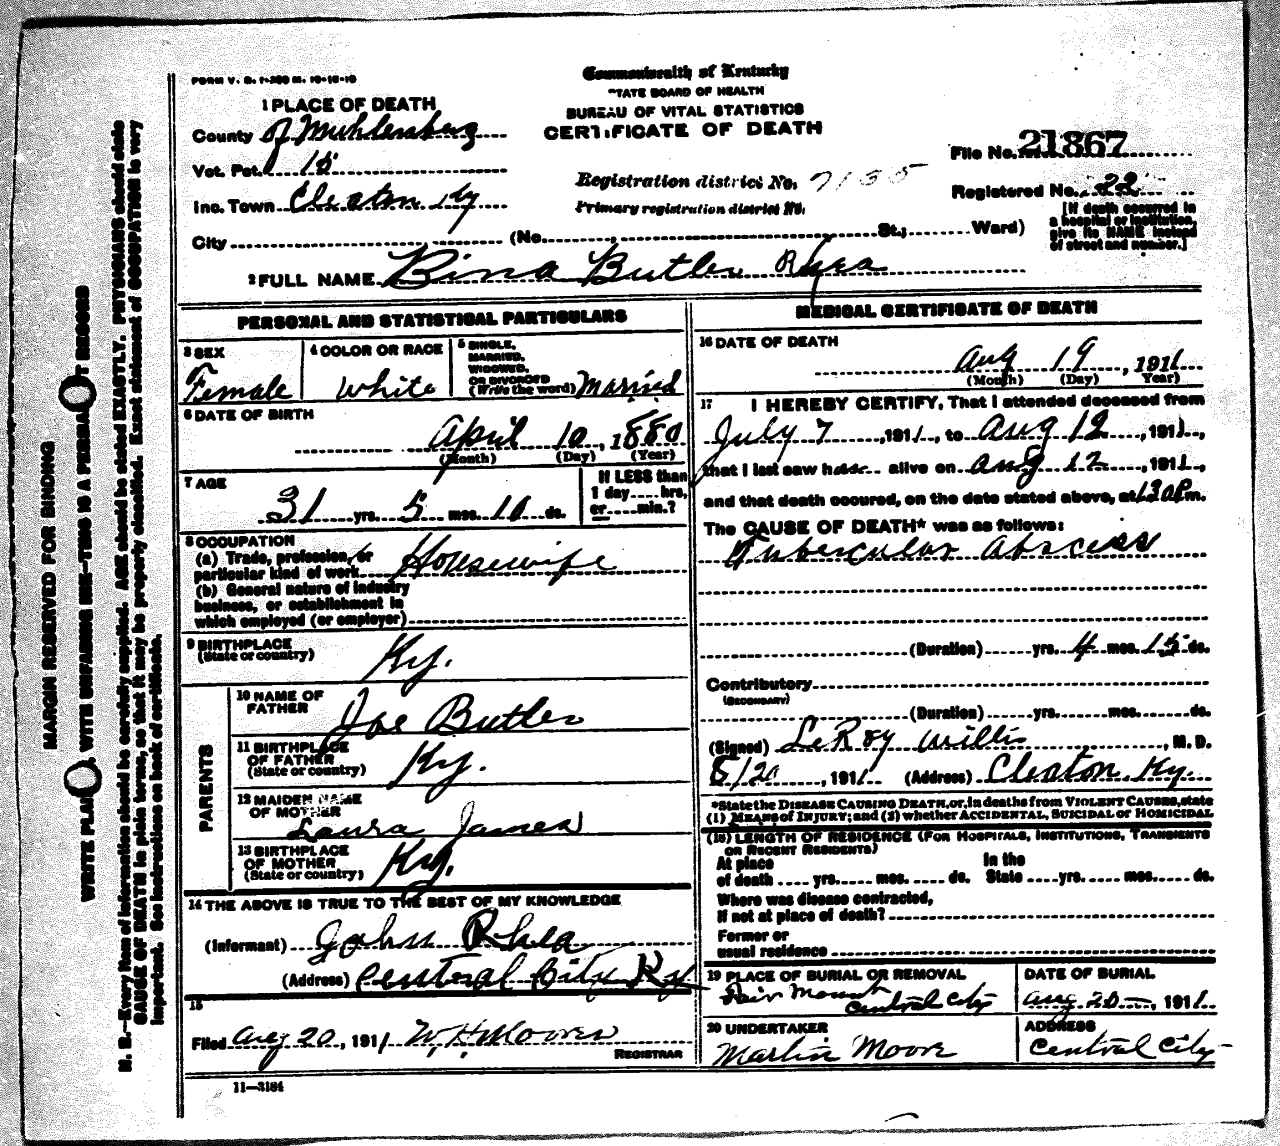 FORM V. S. 1-200 M. 10-18-10
Commonwealth of Kentucky
TATE BOARD OF HEALTH
BUREAU OF VITAL STATISTICS
CERTIFICATE OF DEATH
1 PLACE OF DEATH
County of Muhlenberg
Vot. Pct. 15
Inc. Town Cleaton Ky
City (No. , St.; Ward)
File No. 21867
Registration district No. 7135
Primary registration district No.
Registered No. 22
[If death occurred in a hospital or institution, give its NAME instead of street and number.]
2 FULL NAME Bina Butler Rhea
PERSONAL AND STATISTICAL PARTICULARS
3 SEX
Female
4 COLOR OR RACE
White
5 SINGLE, MARRIED, WIDOWED, OR DIVORCED
(Write the word) Married
6 DATE OF BIRTH
April 10, 1880
(Month) (Day) (Year)
7 AGE
31 yrs. 5 mos. 10 ds.
If LESS than
1 day .... hrs.
or .... min.?
8 OCCUPATION
(a) Trade, profession, or
particular kind of work Housewife
(b) General nature of industry
business, or establishment in
which employed (or employer)
9 BIRTHPLACE
(State or country) Ky.
PARENTS
10 NAME OF
FATHER Joe Butler
11 BIRTHPLACE
OF FATHER
(State or country) Ky.
12 MAIDEN NAME
OF MOTHER
Laura James
13 BIRTHPLACE
OF MOTHER
(State or country) Ky.
14 THE ABOVE IS TRUE TO THE BEST OF MY KNOWLEDGE
(Informant) John Rhea
(Address) Central City Ky
15
Filed Aug 20, 1911 W. H. Moores
REGISTRAR
11—3184
MEDICAL CERTIFICATE OF DEATH
16 DATE OF DEATH
Aug 19, 1911
(Month) (Day) (Year)
17 I HEREBY CERTIFY, That I attended deceased from
July 7, 1911, to Aug 12, 1911,
that I last saw her alive on Aug 12, 1911,
and that death occured, on the date stated above, at 130 P m.
The CAUSE OF DEATH* was as follows:
Tubercular Abscess
(Duration) yrs. 4 mos. 15 ds.
Contributory
(SECONDARY)
(Duration) yrs. mos. ds.
(Signed) LeRoy Willis, M. D.
8/20, 1911 (Address) Cleaton Ky.
*State the DISEASE CAUSING DEATH, or, in deaths from VIOLENT CAUSES, state
(1) MEANS of INJURY; and (2) whether ACCIDENTAL, SUICIDAL or HOMICIDAL
(18) LENGTH OF RESIDENCE (FOR HOSPITALS, INSTITUTIONS, TRANSIENTS
OR RECENT RESIDENTS)
At place In the
of death .... yrs. .... mos. .... ds. State .... yrs. .... mos. .... ds.
Where was disease contracted,
If not at place of death?
Former or
usual residence
19 PLACE OF BURIAL OR REMOVAL
Fair Mount
Central City
DATE OF BURIAL
Aug 20, 1911
20 UNDERTAKER
Martin Moore
ADDRESS
Central City
MARGIN RESERVED FOR BINDING
N. B.—Every item of information should be carefully supplied. AGE should be stated EXACTLY. PHYSICIANS should state
CAUSE OF DEATH in plain terms, so that it may be properly classified. Exact statement of OCCUPATION is very
important. See instructions on back of certificate.